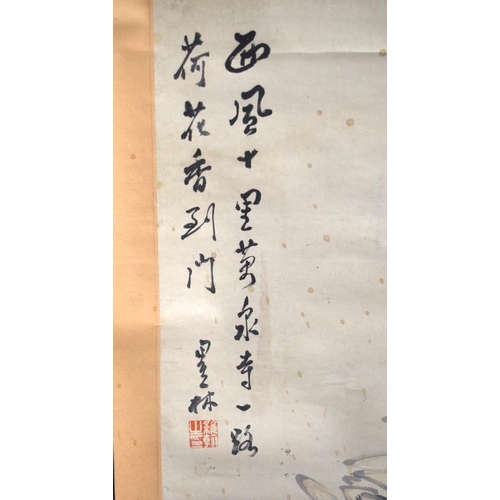 西風十里萬泉寺一路
荷花香到門
墨林